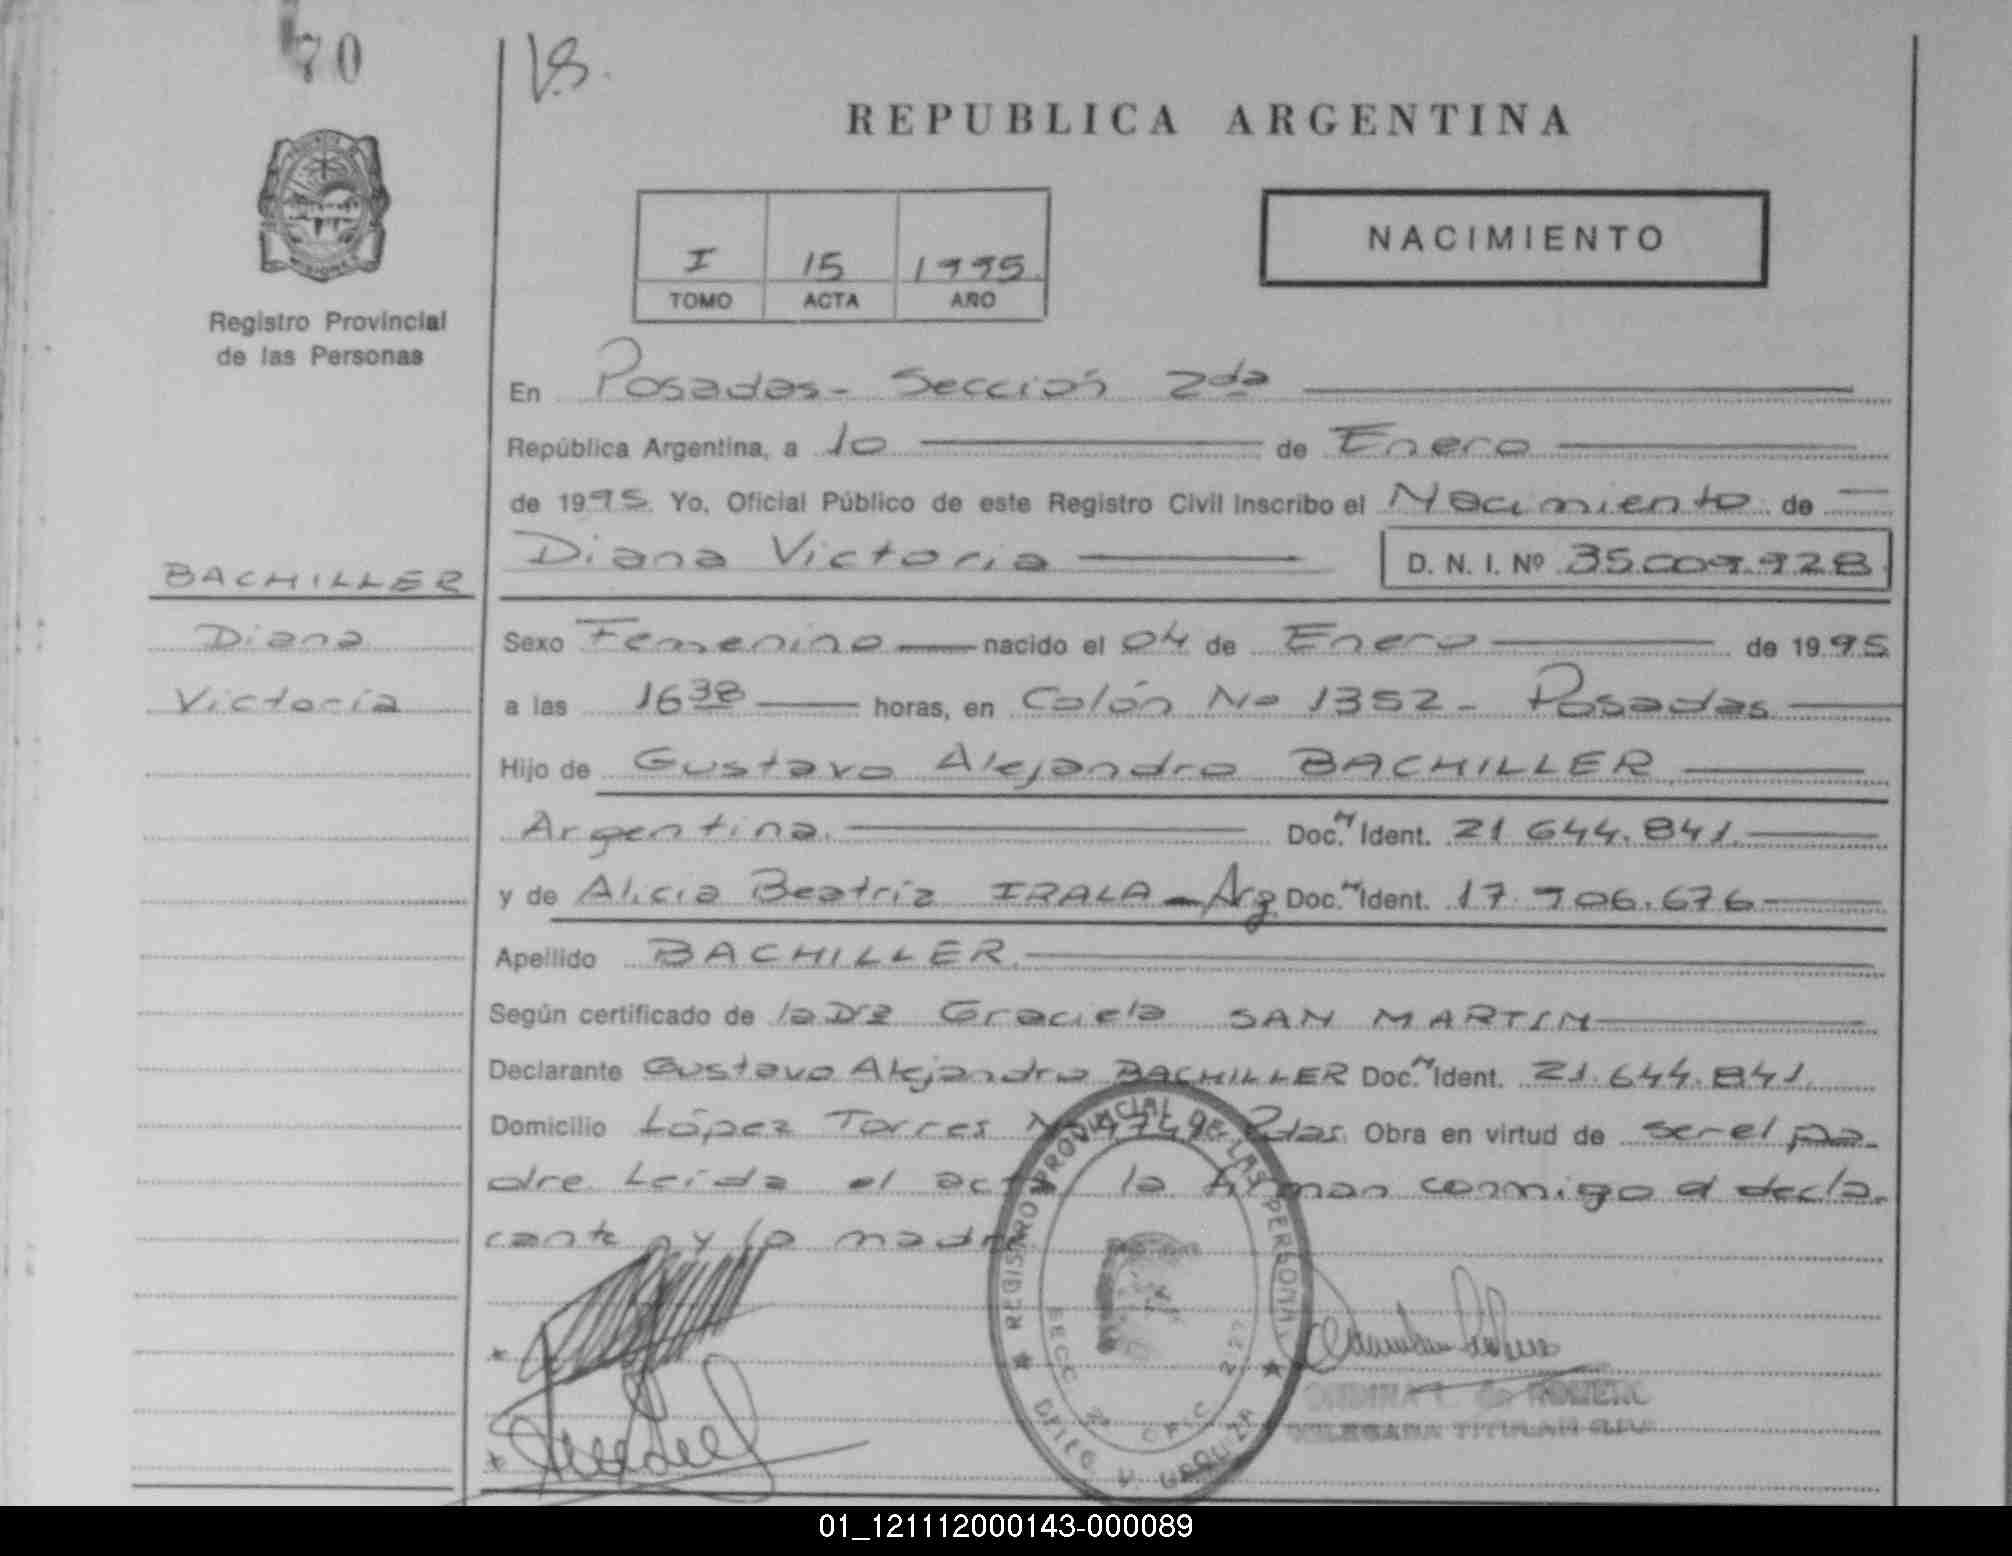 70
V.S.
REPUBLICA ARGENTINA
NACIMIENTO
I 15 1995
TOMO ACTA AÑO
Registro Provincial
de las Personas
En Posadas - Sección 2da
República Argentina, a 10 de Enero
de 1995 Yo, Oficial Público de este Registro Civil Inscribo el Nacimiento de
Diana Victoria D. N. I. Nº 35.009.928
BACHILLER
Diana
Victoria
Sexo Femenino nacido el 04 de Enero de 1995
a las 16 38 horas, en Colón No 1352 - Posadas
Hijo de Gustavo Alejandro BACHILLER
Argentina. Doc. N Ident. 21.644.841.
y de Alicia Beatriz IRALA - Arg Doc. N Ident. 17.706.676
Apellido BACHILLER
Según certificado de la Dra Graciela SAN MARTIN
Declarante Gustavo Alejandro BACHILLER Doc. N Ident. 21.644.841.
Domicilio López Torres Nº 4749 Pdas. Obra en virtud de ser el pa-
dre Leída el acta la firman conmigo el decla-
rante y la madre
REGISTRO PROVINCIAL DE LAS PERSONAS
SECC. 2ª
DELEG. URQUIZA
DELEGADA TITULAR
01_121112000143-000089